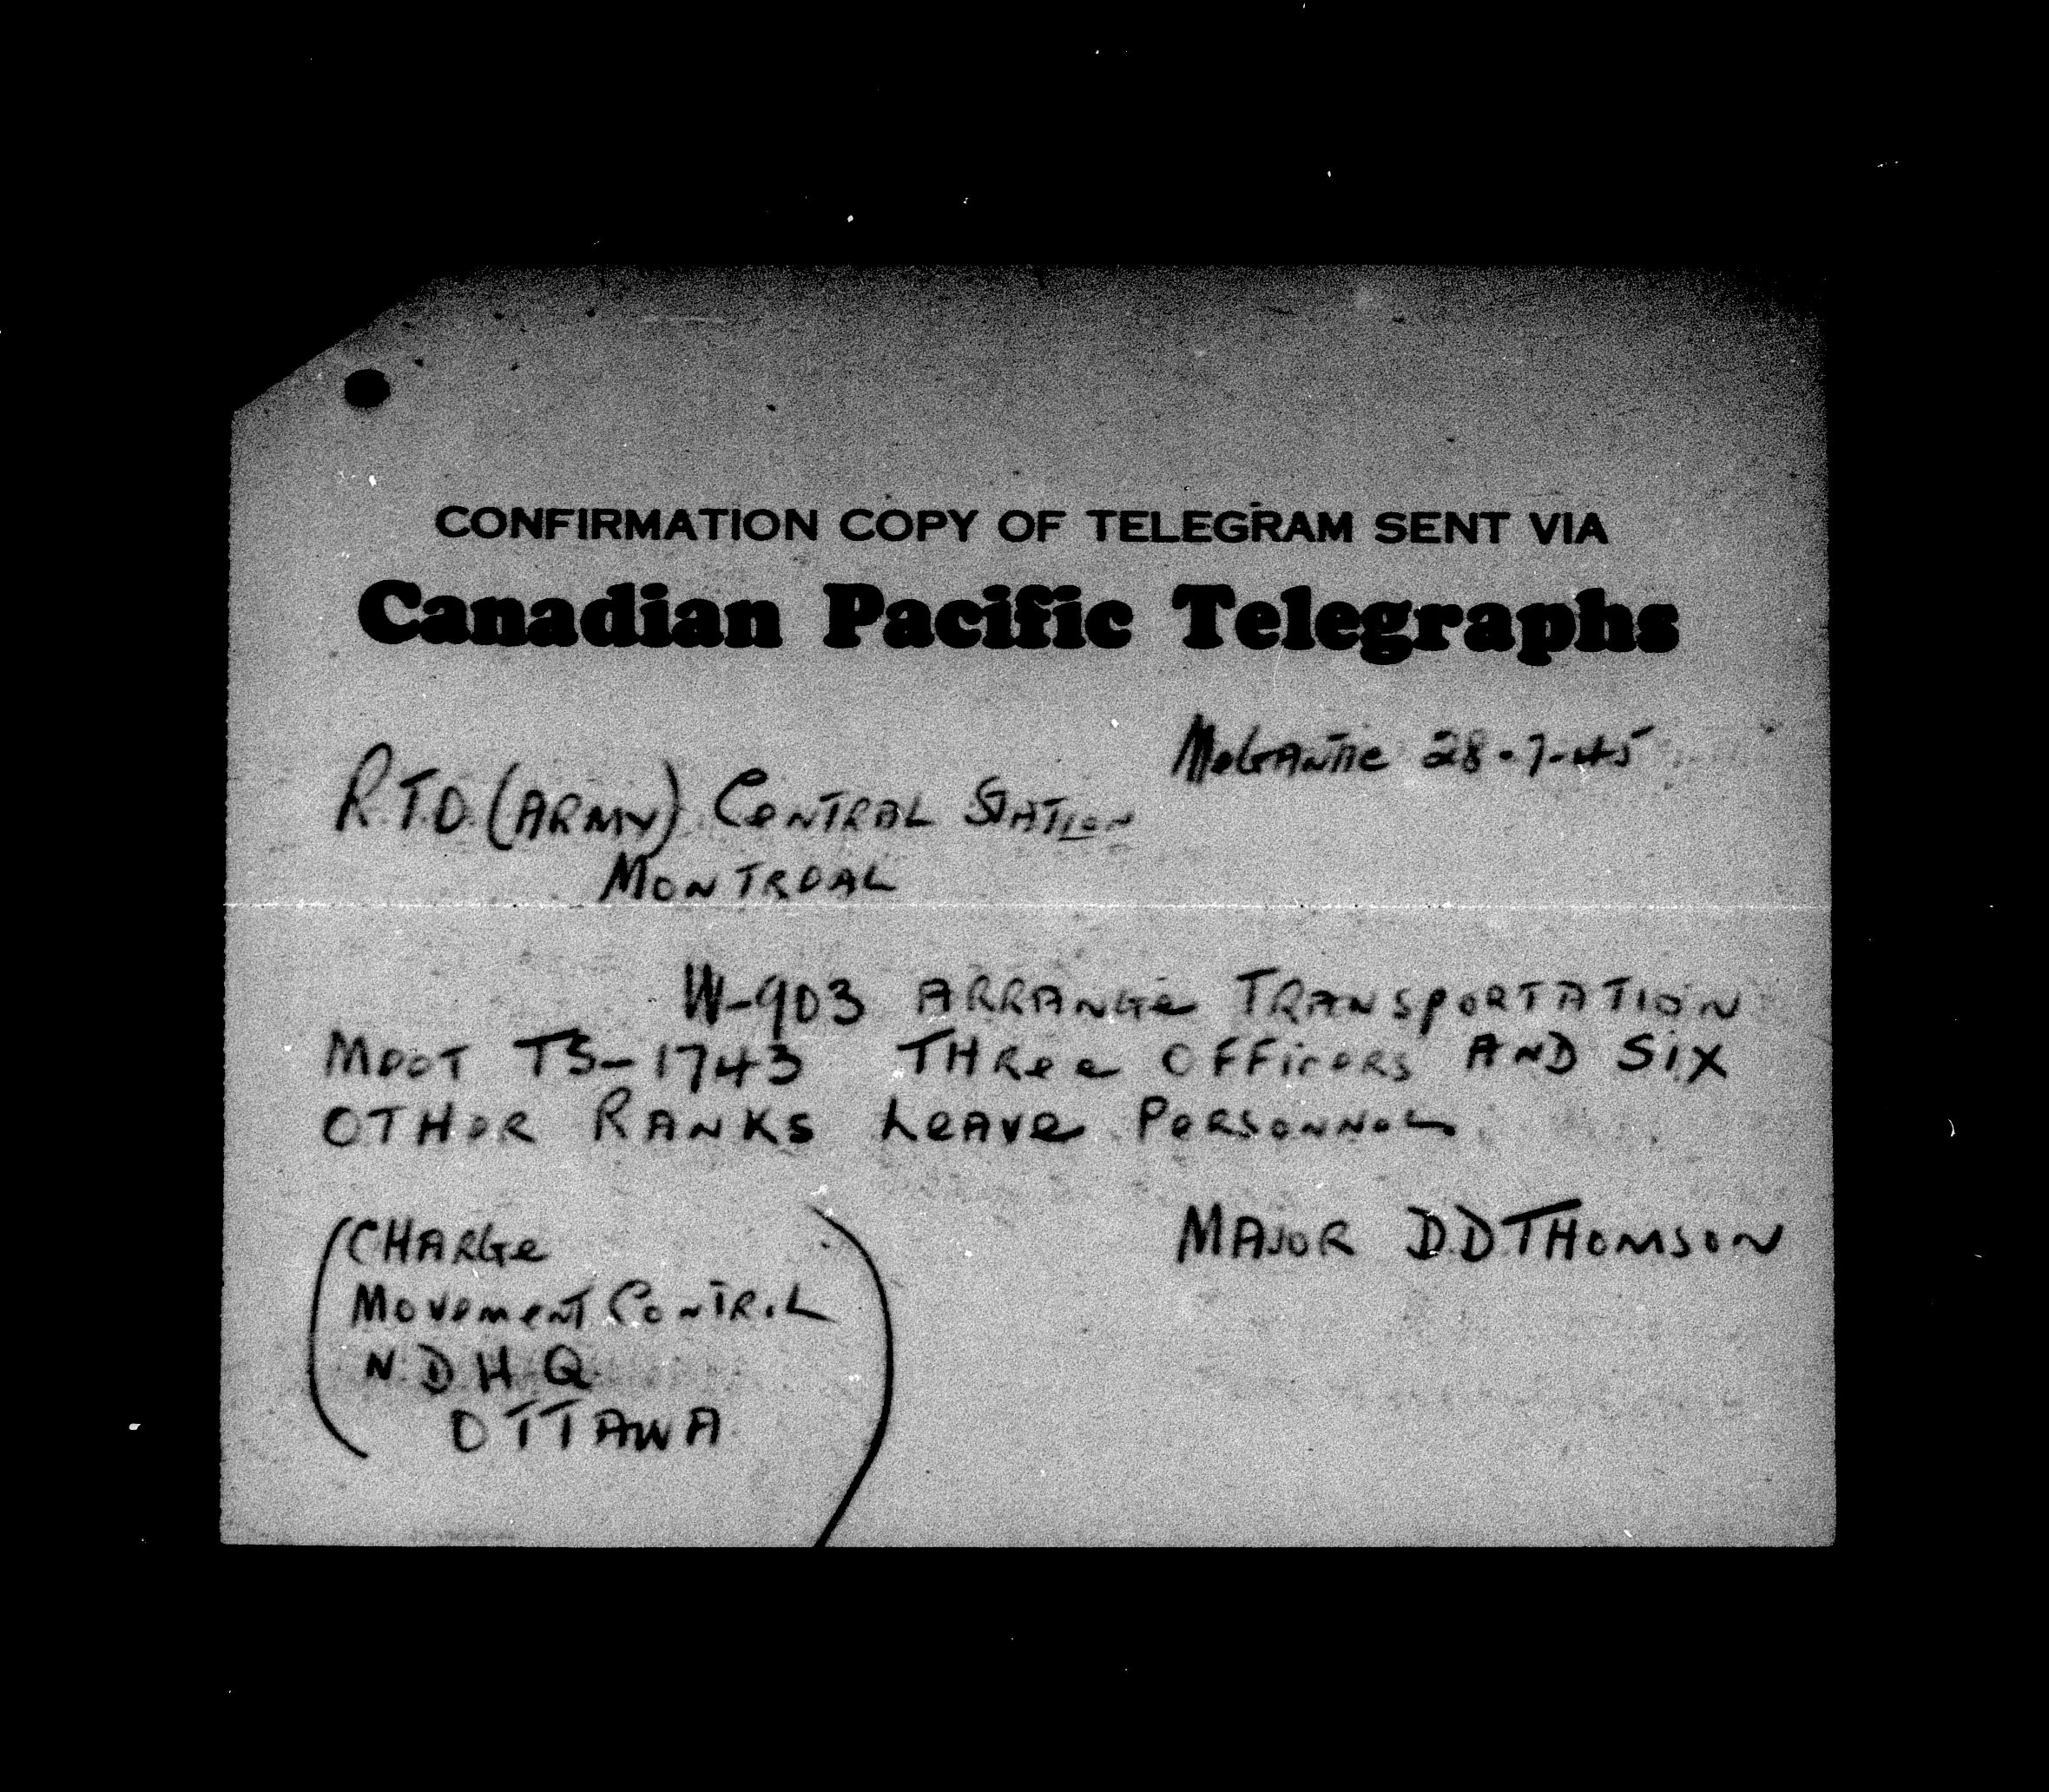 CONFIRMATION COPY OF TELEGRAM SENT VIA
Canadian Pacific Telegraphs
Megantic 28-7-45
R.T.O. (ARMY) Central Station
Montreal
W-903 Arrange Transportation
Meet TS-1743 Three Officers and Six
Other Ranks Leave Personnel
(Charge
Movement Control
N.D.H.Q
Ottawa)
Major D.D Thomson